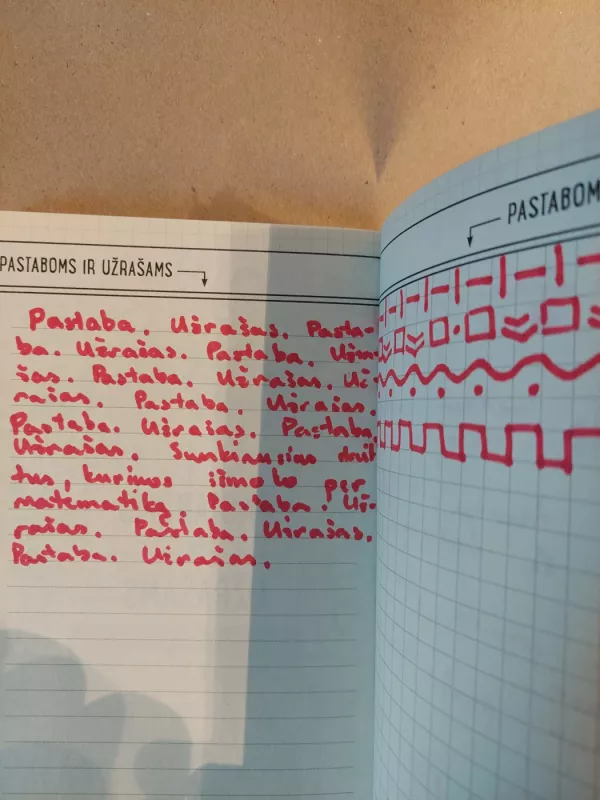 PASTABOMS IR UŽRAŠAMS
PASTABOM
Pastaba. Užrašas. Pasta-
ba. Užrašas. Pastaba. Užra-
šas. Pastaba. Užrašas. Už-
rašas. Pastaba. Užrašas.
Pastaba. Užrašas. Pastaba.
Užrašas. Sunkiausias
tus, kuriuos išmoko per
matematiką. Pastaba. Už-
rašas. Pastaba. Užrašas.
Pastaba. Užrašas.